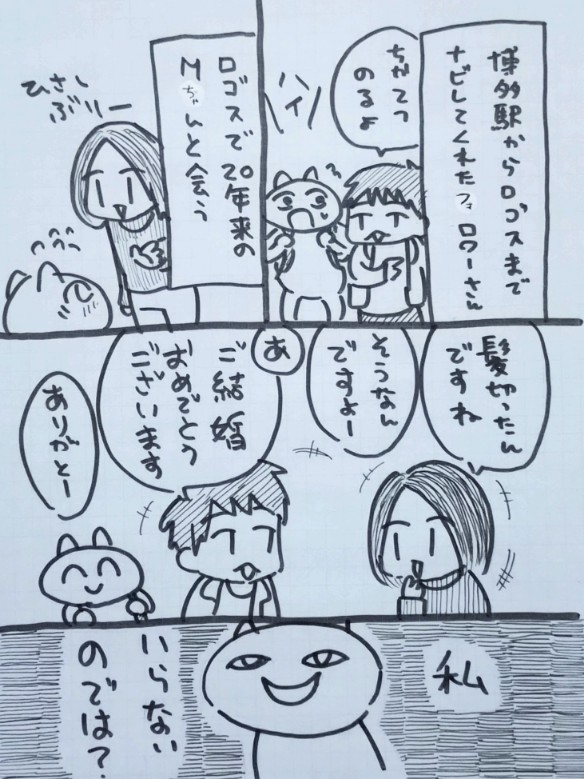 博多駅からロゴスまで
ナビしてくれたフォロワーさん
ちかてつ
のるよ
ハイ
ロゴスで20年来の
Mちゃんと会う
ひさし
ぶりー
髪切ったん
ですね
そうなん
ですよー
あ
ご結婚
おめでとう
ございます
ありがとー
私
いらない
のでは？